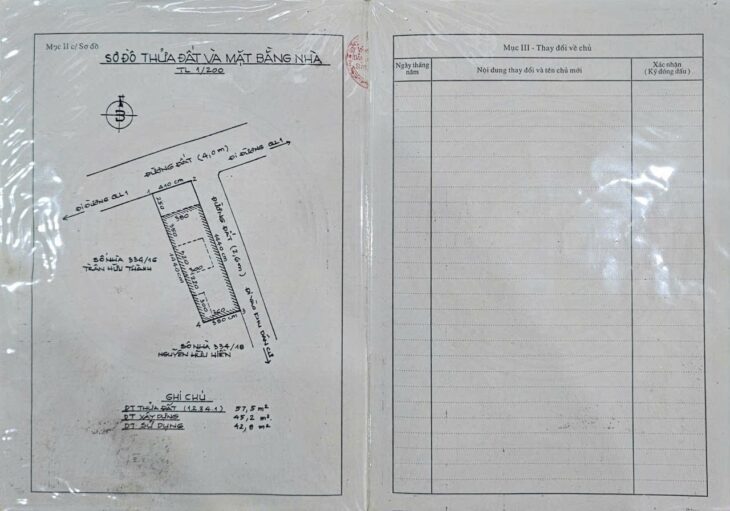 Mục II c/ Sơ đồ
SƠ ĐỒ THỬA ĐẤT VÀ MẶT BẰNG NHÀ
TL 1/200
B
ĐƯỜNG ĐẤT (4,0m)
ĐI ĐƯỜNG QL1
ĐI ĐƯỜNG QL1
1
410 cm
2
250
380
ĐƯỜNG ĐẤT (2,6m)
1440 cm
1440 cm
SỐ NHÀ 334/16
TRẦN HỮU THÀNH
300
360
4
380 cm
ĐI VÀO KHU DÂN CƯ
SỐ NHÀ 334/18
NGUYỄN HỮU HIỀN
GHI CHÚ
DT THỬA ĐẤT (1.2.3.4.1) 57,5 m²
DT XÂY DỰNG 45,2 m²
DT SỬ DỤNG 42,8 m²
Mục III - Thay đổi về chủ
Ngày tháng năm
Nội dung thay đổi và tên chủ mới
Xác nhận
( Ký đóng dấu )